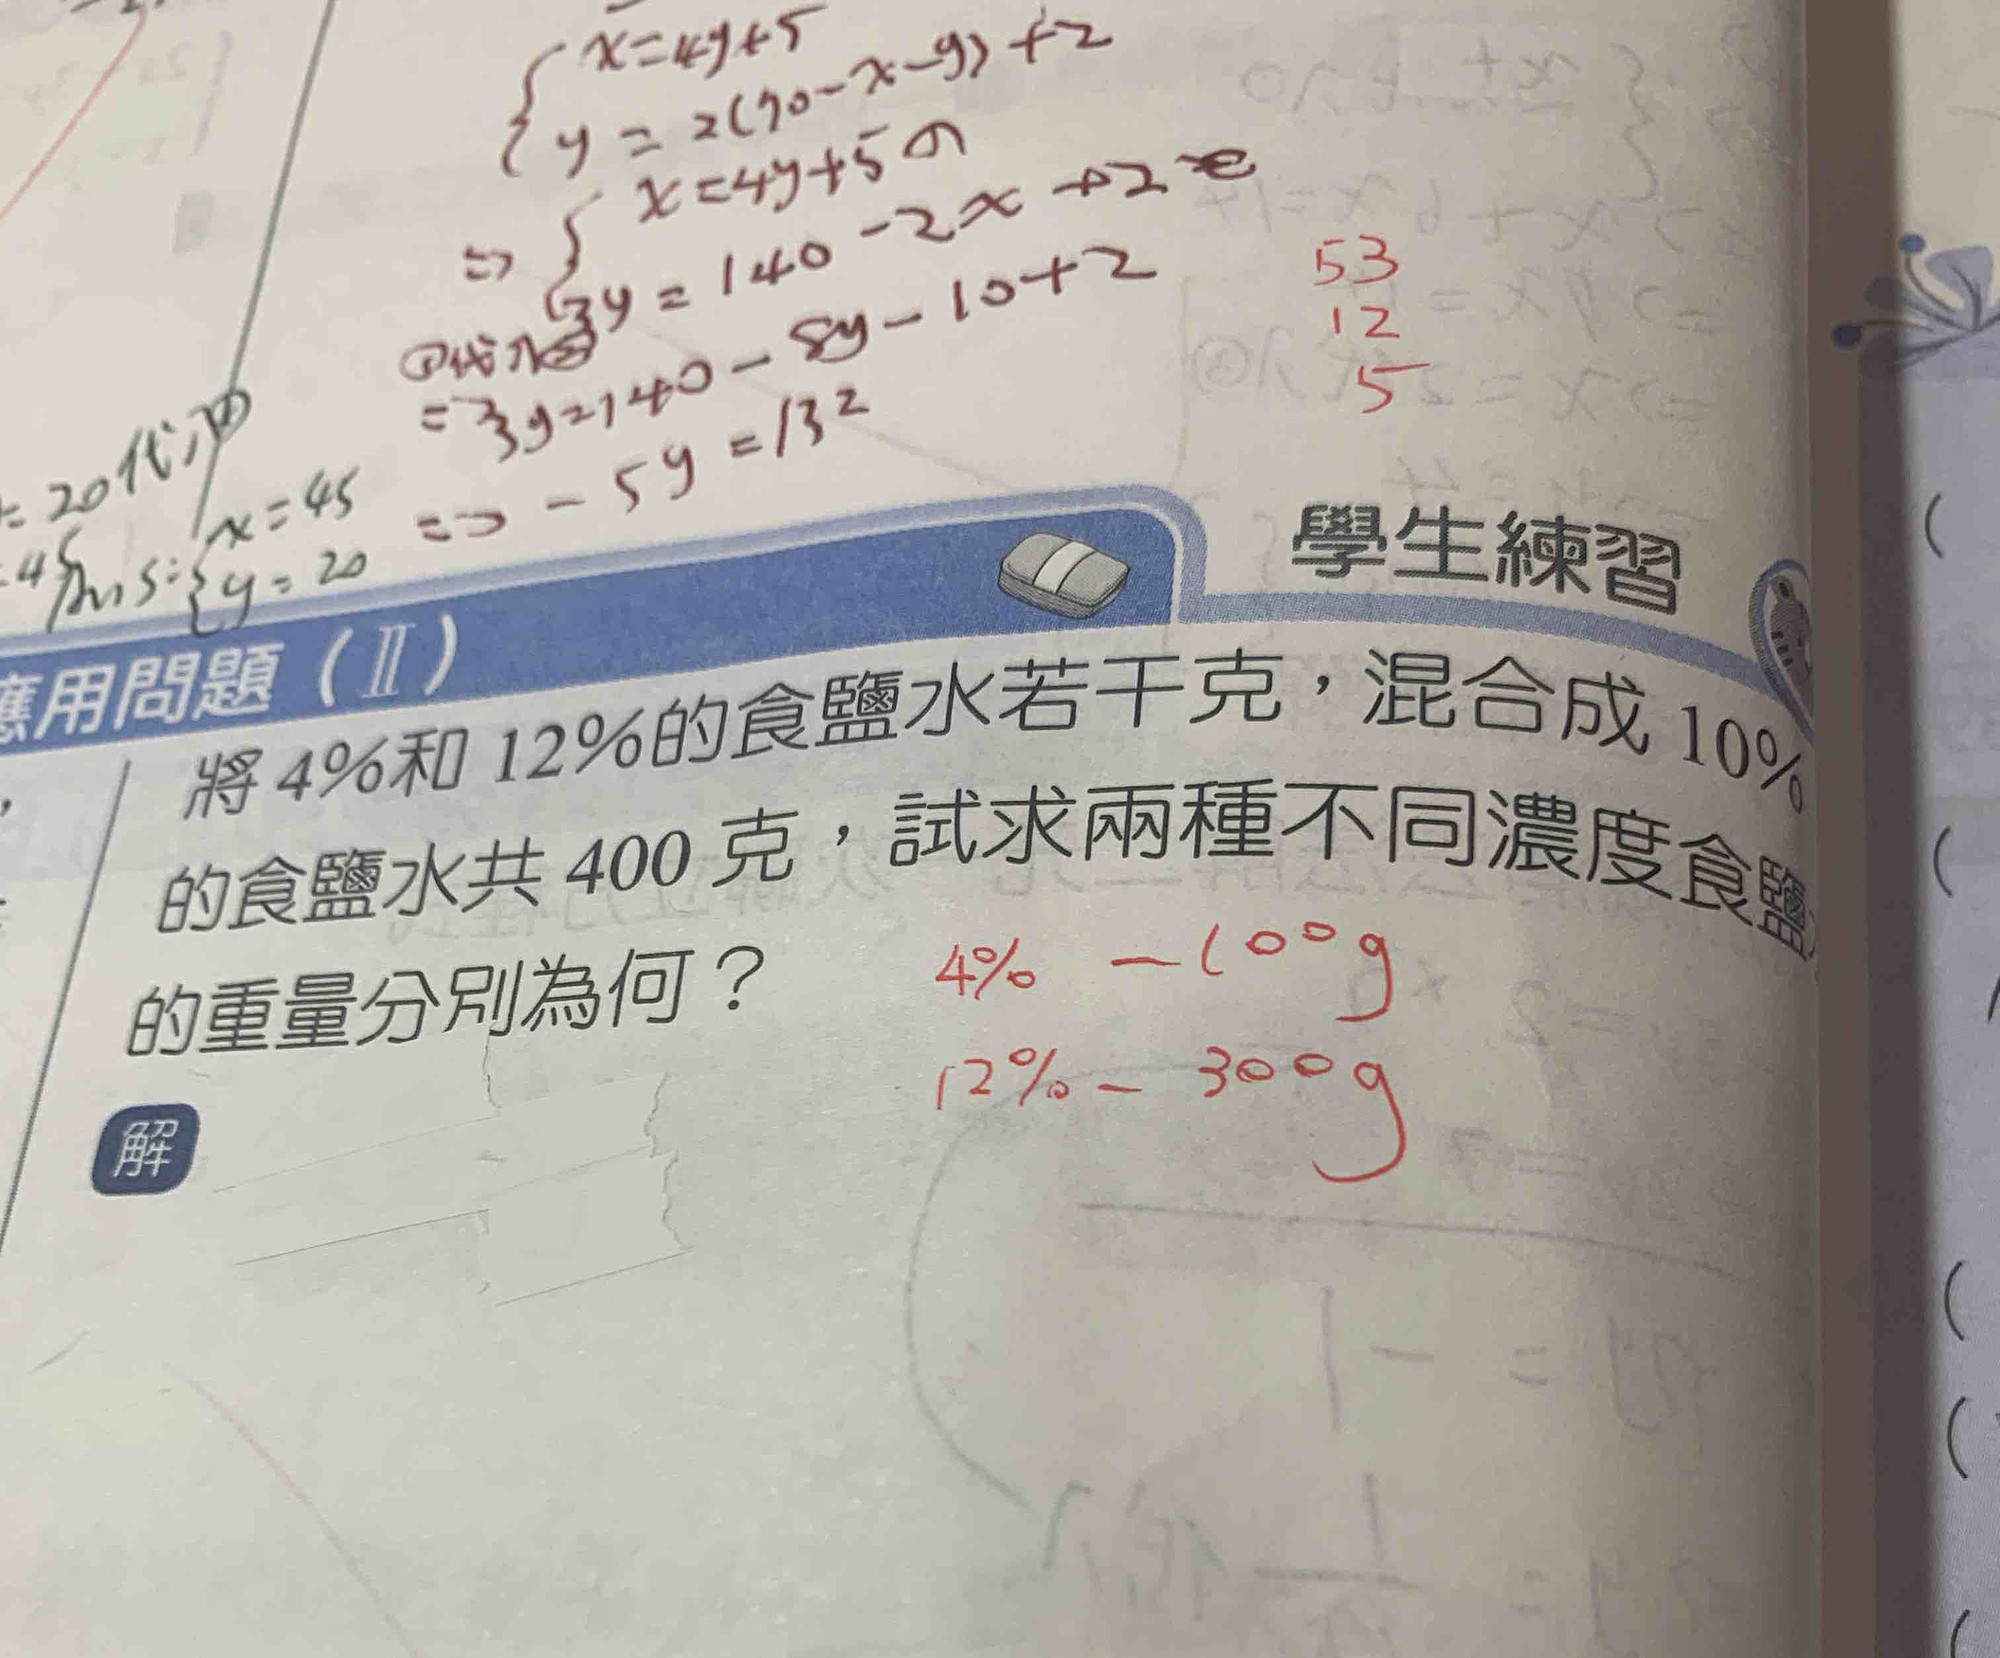 x=4y+5
y=2(70-x-y)+2
x=4y+5①
=> 3y=140-2x+2
①代入②
=>3y=140-8y-10+2
=> -5y=132
53
12
5
=20代入①
x=45
Ans: y=20
應用問題(Ⅱ)
學生練習
將4%和12%的食鹽水若干克,混合成10%
的食鹽水共400克,試求兩種不同濃度食鹽
的重量分別為何?
4% -100g
12% - 300g
解